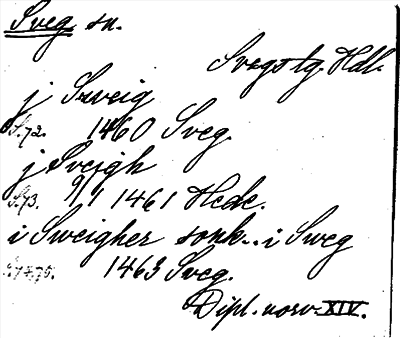 Sveg sn.
Svegs tg. Hdl.
j Szveig
S.72. 1460 Sveg.
j Svejgh
S.73. 9/1 1461 Hede.
i Sweigher sonk.. i Sweg
1463 Sveg.
Dipl. norv. XIV.